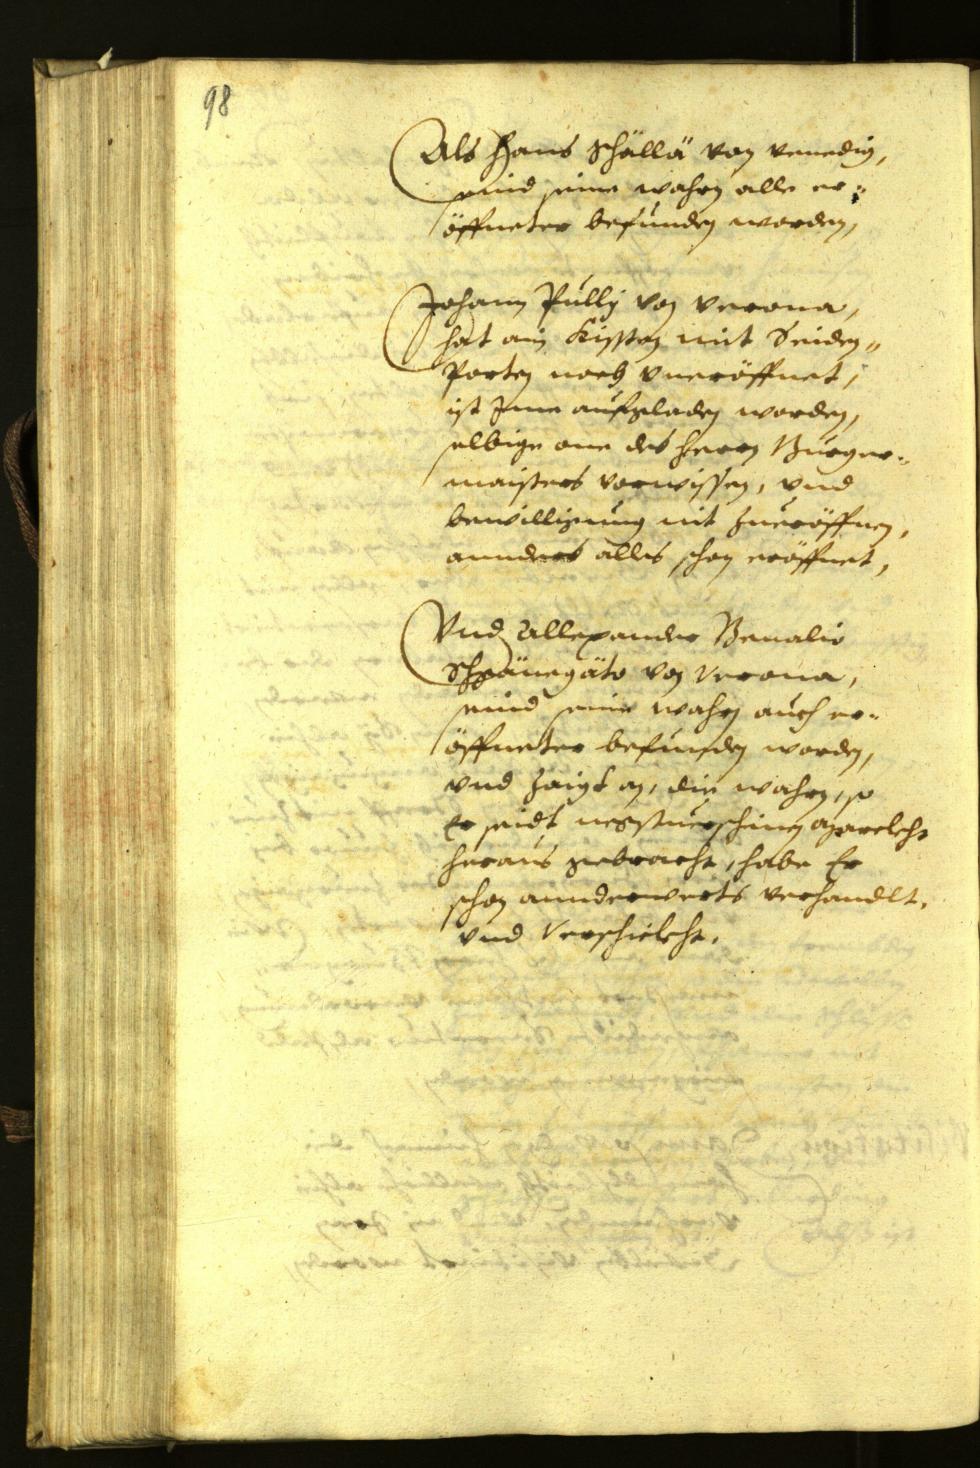 98
Als Hans Schällä von Venedig,
seind seine wahrn alle er¬
öffneter befunden worden,
Johann Pully von Verona,
hat ain Kissten mit Seiden¬
Porten noch vneröffnet,
ist Ime aufgeladen worden,
selbige one des Herrn Burger¬
maisters vorwissen, vnd
bewilligung nit zueröffnen,
annders alles schon eröffnet,
Vnd Allexander Benalio
von Verona,
seind seine wahrn auch er¬
öffneter befunden worden,
vnd zaigt an, die wahrn, so
Er seidt
heraus gebracht, habe Er
schon annderwerts verhandlt,
vnd Verschickht.